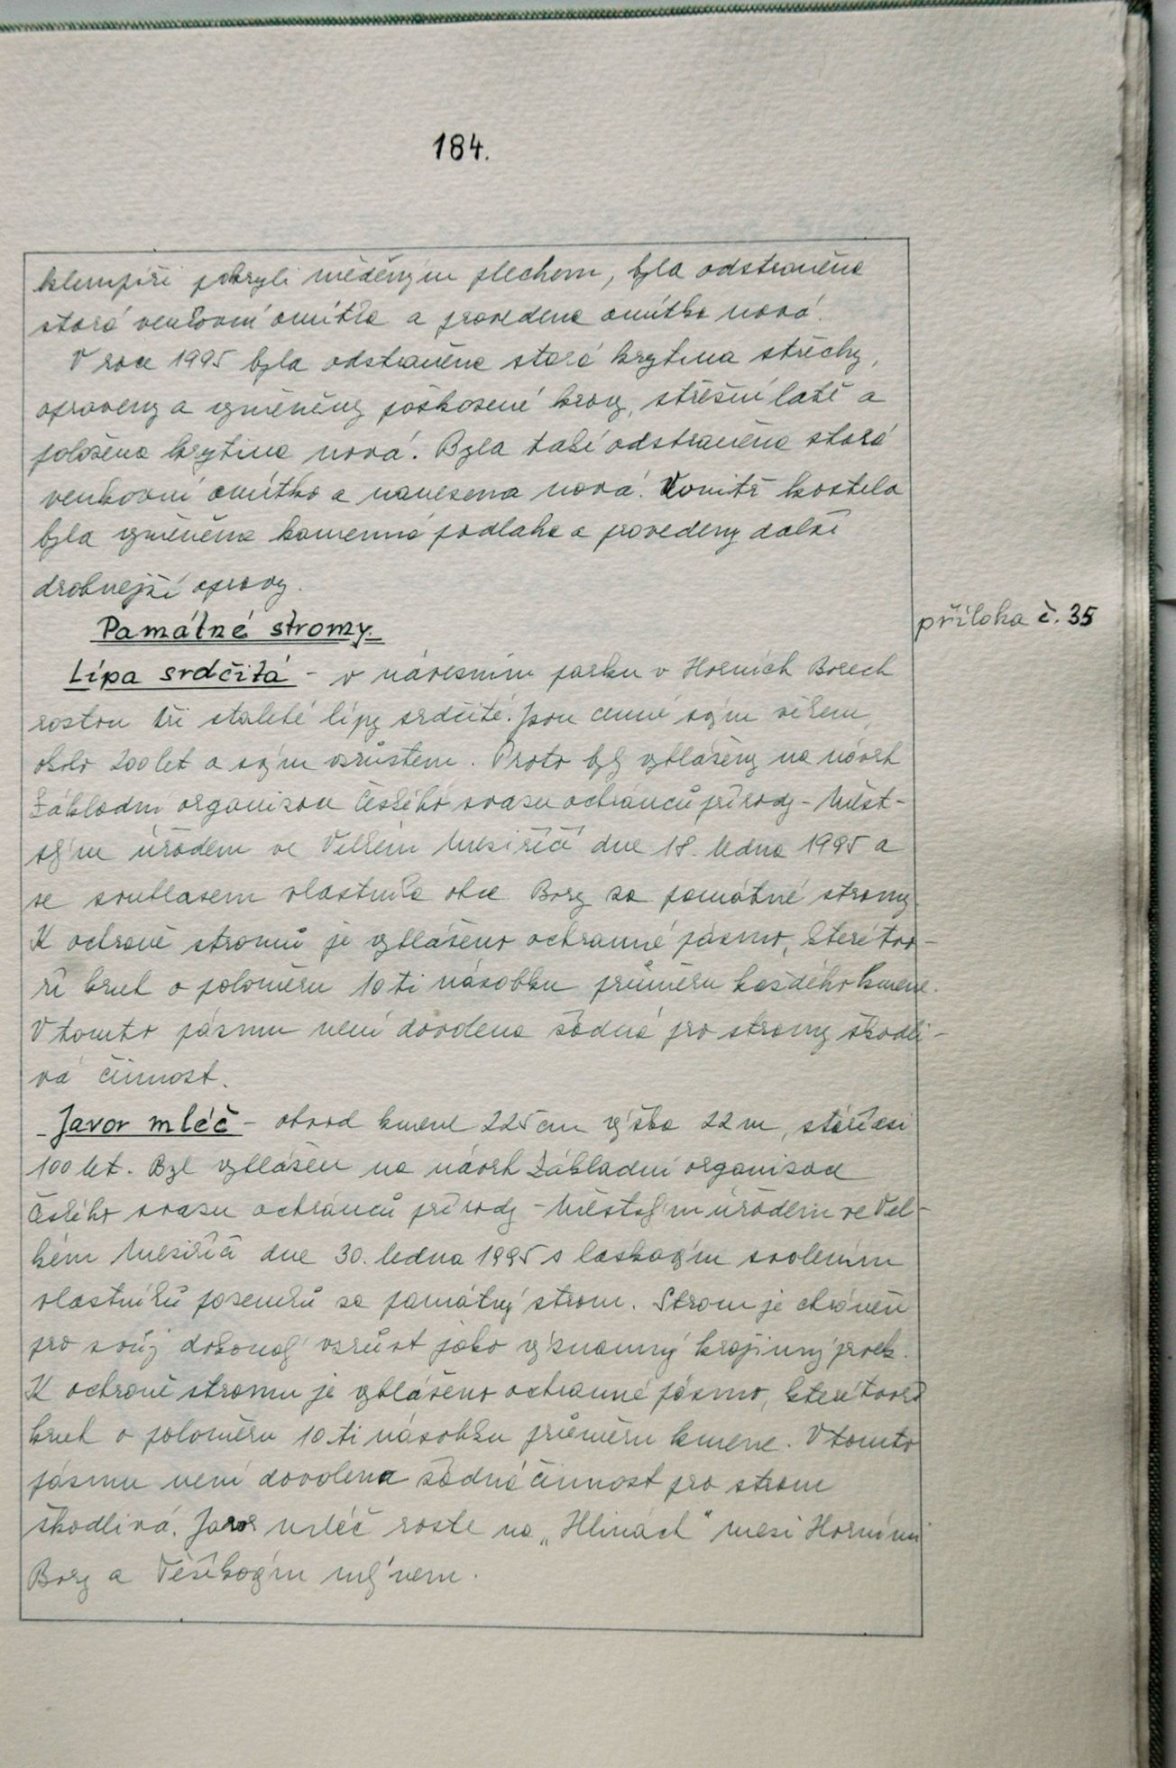 184.
klempíři pokryli měděným plechem, byla odstraněna
stará venkovní omítka a provedena omítka nová.
V roce 1995 byla odstraněna stará krytina střechy,
opraveny a vyměněny poškozené krovy, střešní latě a
položena krytina nová. Byla také odstraněna stará
venkovní omítka a nanesena nová. Uvnitř kostela
byla vyměněna kamenná podlaha a provedeny další
drobnější opravy.
Památné stromy.
příloha č. 35
Lípa srdčitá - v návesním parku v Horních Borech
rostou tři staleté lípy srdčité. Jsou cenné svým věkem,
okolo 200 let a svým vzrůstem. Proto byly vyhlášeny na návrh
Základní organizace Českého svazu ochránců přírody - Měst-
ským úřadem ve Velkém Meziříčí dne 18. ledna 1995 a
se souhlasem vlastníka obce Bory za památné stromy.
K ochraně stromů je vyhlášeno ochranné pásmo, které tvo-
ří kruh o poloměru 10ti násobku průměru každého kmene.
V tomto pásmu není dovolena žádná pro stromy škodli-
vá činnost.
Javor mléč - obvod kmene 225 cm výška 22 m, stáří asi
100 let. Byl vyhlášen na návrh Základní organizace
Českého svazu ochránců přírody - Městským úřadem ve Vel-
kém Meziříčí dne 30. ledna 1995 s laskavým svolením
vlastníků pozemků za památný strom. Strom je chráněn
pro svůj dokonalý vzrůst jako významný krajinný prvek.
K ochraně stromu je vyhlášeno ochranné pásmo, které tvoří
kruh o poloměru 10.ti násobku průměru kmene. V tomto
pásmu není dovolena žádná činnost pro strom
škodlivá. Javor mléč roste na „Hlinách" mezi Horními
Bory a Těšíkovým mlýnem.